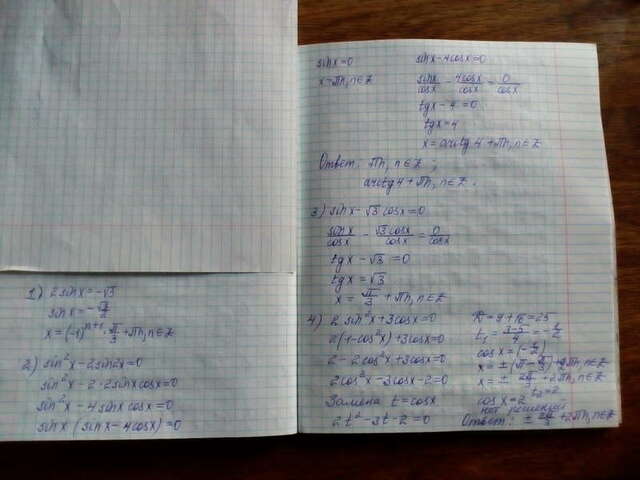 1) 2 sin x = -√3
sin x = -√3/2
x = (-1)ⁿ⁺¹ · π/3 + πn, n∈Z
2) sin²x - 2 sin 2x = 0
sin²x - 2·2 sin x cos x = 0
sin²x - 4 sin x cos x = 0
sin x (sin x - 4 cos x) = 0
sin x = 0
x = πn, n∈Z
sin x - 4 cos x = 0
sin x/cos x - 4 cos x/cos x = 0/cos x
tg x - 4 = 0
tg x = 4
x = arctg 4 + πn, n∈Z
Ответ: πn, n∈Z;
arctg 4 + πn, n∈Z.
3) sin x - √3 cos x = 0
sin x/cos x - √3 cos x/cos x = 0/cos x
tg x - √3 = 0
tg x = √3
x = π/3 + πn, n∈Z
4) 2 sin²x + 3 cos x = 0
2(1 - cos²x) + 3 cos x = 0
2 - 2 cos²x + 3 cos x = 0
2 cos²x - 3 cos x - 2 = 0
Замена t = cos x
2t² - 3t - 2 = 0
D = 9 + 16 = 25
t₁ = 3-5/4 = -1/2
cos x = (-1/2)
x = ± (π - π/3) + 2πn, n∈Z
x = ± 2π/3 + 2πn, n∈Z
t₂ = 2
cos x = 2
нет решений
Ответ: ± 2π/3 + 2πn, n∈Z